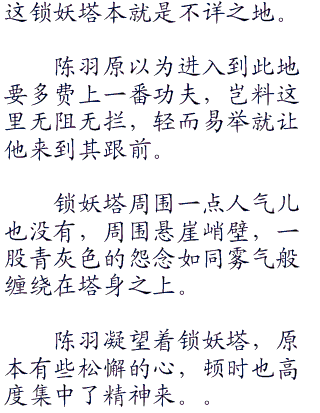 这锁妖塔本就是不详之地。
陈羽原以为进入到此地
要多费上一番功夫，岂料这
里无阻无拦，轻而易举就让
他来到其跟前。
锁妖塔周围一点人气儿
也没有，周围悬崖峭壁，一
股青灰色的怨念如同雾气般
缠绕在塔身之上。
陈羽凝望着锁妖塔，原
本有些松懈的心，顿时也高
度集中了精神来。。